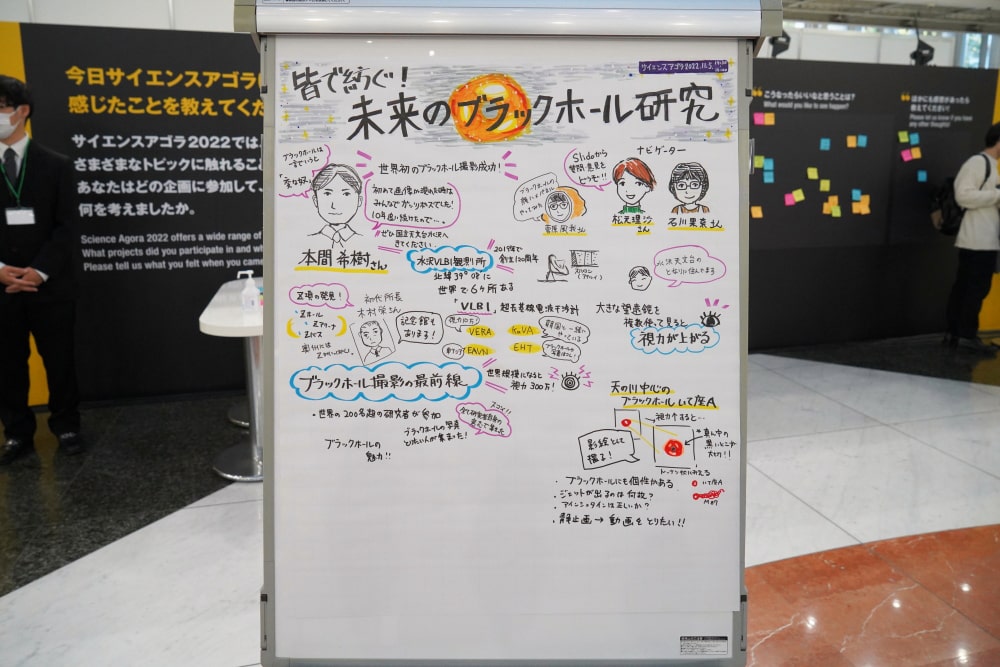 今日サイエンスアゴラ
感じたことを教えてくだ
サイエンスアゴラ2022では
さまざまなトピックに触れるこ
あなたはどの企画に参加して、
何を考えましたか。
Science Agora 2022 offers a wide range of
What projects did you participate in and wh
Please tell us what you felt when you came
皆で紡ぐ!
未来のブラックホール研究
サイエンスアゴラ2022.11.5.
ブラックホールは
一言でいうと
「変な奴」
世界初のブラックホール撮影成功!
初めて画像が現れた時は
10年追い続けたので…。
ぜひ国立天文台水沢へ
きてください…
本間 希樹さん
Slidoから
質問・意見を
どうぞ!!
ナビゲーター
さん
石川 果奈さん
水沢VLBI観測所
北緯39°08'に
世界で6ヶ所ある
創立120周年
水沢天文台の
となりに住んでまる
Z項の発見!
Zホール
Zアリーナ
Zバス
初代所長
木村栄さん
記念館も
あります!
VLBI
超長基線電波干渉計
VERA
KaVA
EAVN
EHT
大きな望遠鏡を
複数使って見ると
視力が上がる
世界規模になると
視力300万!
ブラックホール撮影の最前線
・世界の200名超の研究者が参加
ブラックホールの写真
とりたい人が集まった!
スゴイ!!
ブラックホールの
魅力!!
天の川中心の
ブラックホール いて座A
視力ケすると…
影絵として
撮る!
真ん中の
黒いとこが
大切!!
・ブラックホールにも個性がある
・ジェットが出るのは何故?
・アインシュタインは正しいか?
・静止画→動画をとりたい!!
いて座A
M87
こうなったらいいなと思うことは?
What would you like to see happen?
ほかにも感想があったら
教えてください!
Please let us know if you have
any other thoughts!